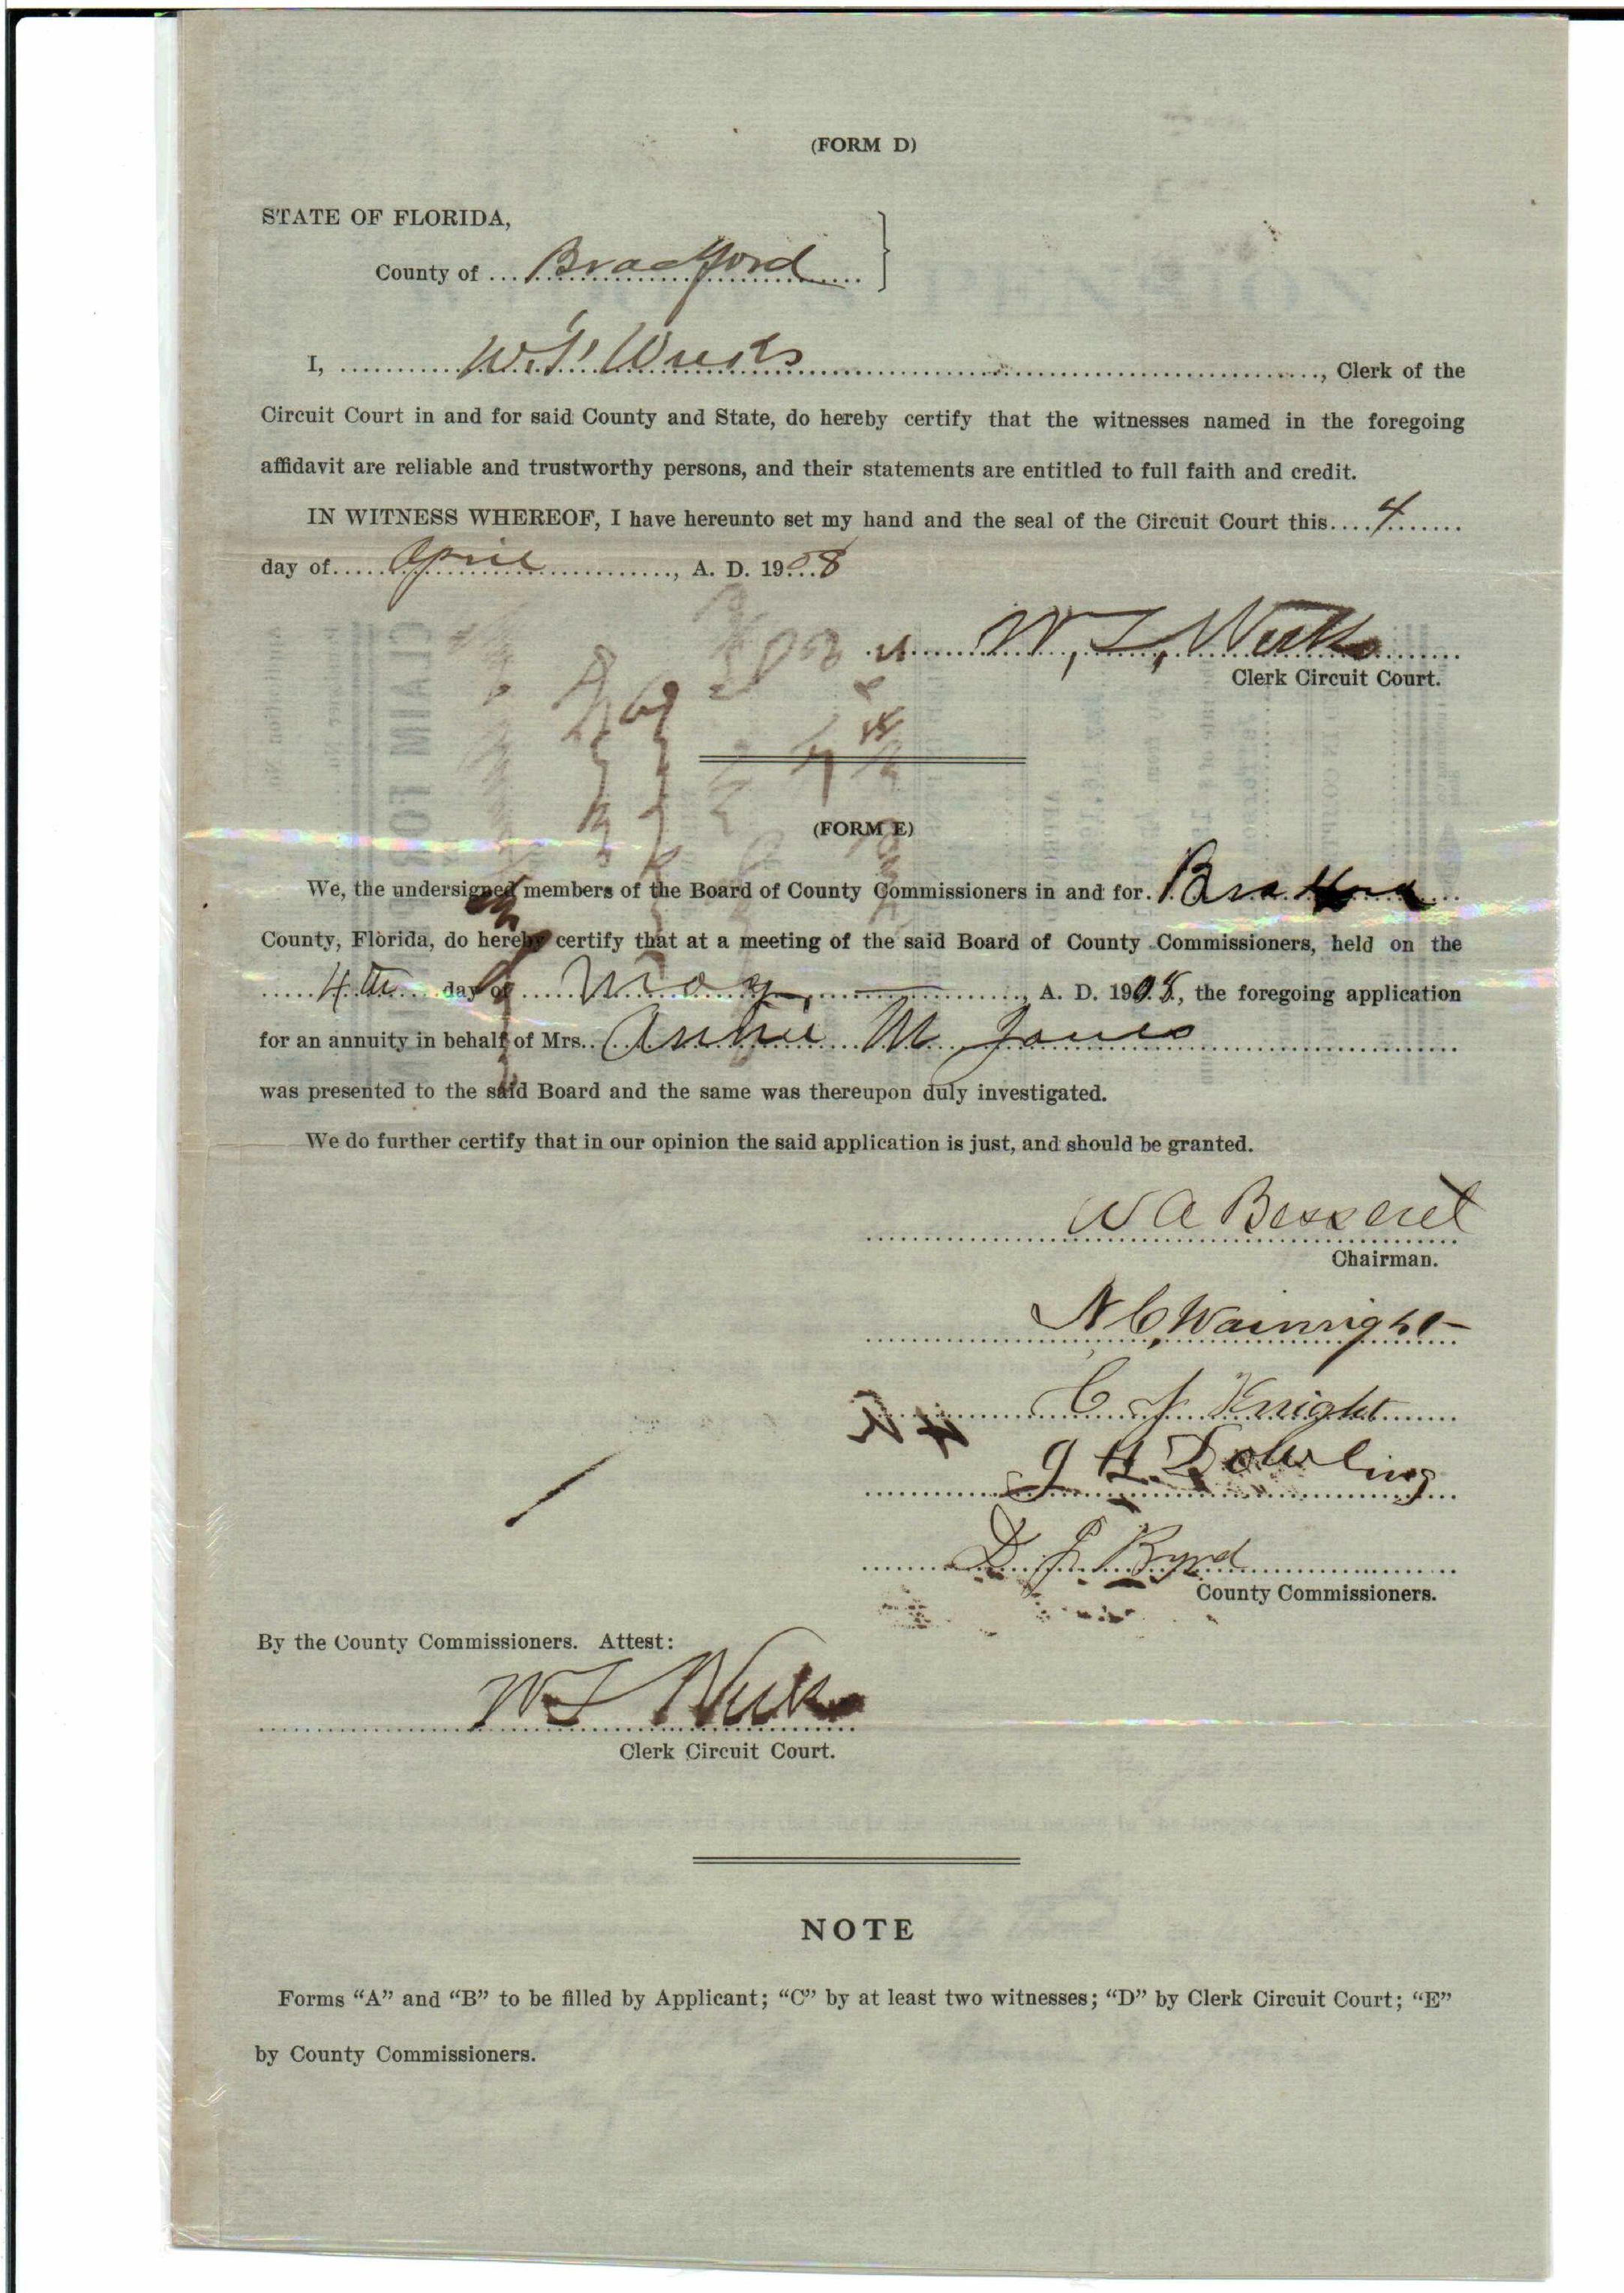 (FORM D)
STATE OF FLORIDA,
County of Bradford
I, W. T. Weeks, Clerk of the
Circuit Court in and for said County and State, do hereby certify that the witnesses named in the foregoing
affidavit are reliable and trustworthy persons, and their statements are entitled to full faith and credit.
IN WITNESS WHEREOF, I have hereunto set my hand and the seal of the Circuit Court this 4
day of April, A. D. 1908
W. T. Weeks
Clerk Circuit Court.
(FORM E)
We, the undersigned members of the Board of County Commissioners in and for Bradford
County, Florida, do hereby certify that at a meeting of the said Board of County Commissioners, held on the
4th day of May, A. D. 1908, the foregoing application
for an annuity in behalf of Mrs. Annie M Jones
was presented to the said Board and the same was thereupon duly investigated.
We do further certify that in our opinion the said application is just, and should be granted.
W A
Chairman.
N C, Wainright
C J Knight
J H. Dowling
D J Byrd
County Commissioners.
By the County Commissioners. Attest:
W T Weeks
Clerk Circuit Court.
NOTE
Forms “A” and “B” to be filled by Applicant; “C” by at least two witnesses; “D” by Clerk Circuit Court; “E”
by County Commissioners.